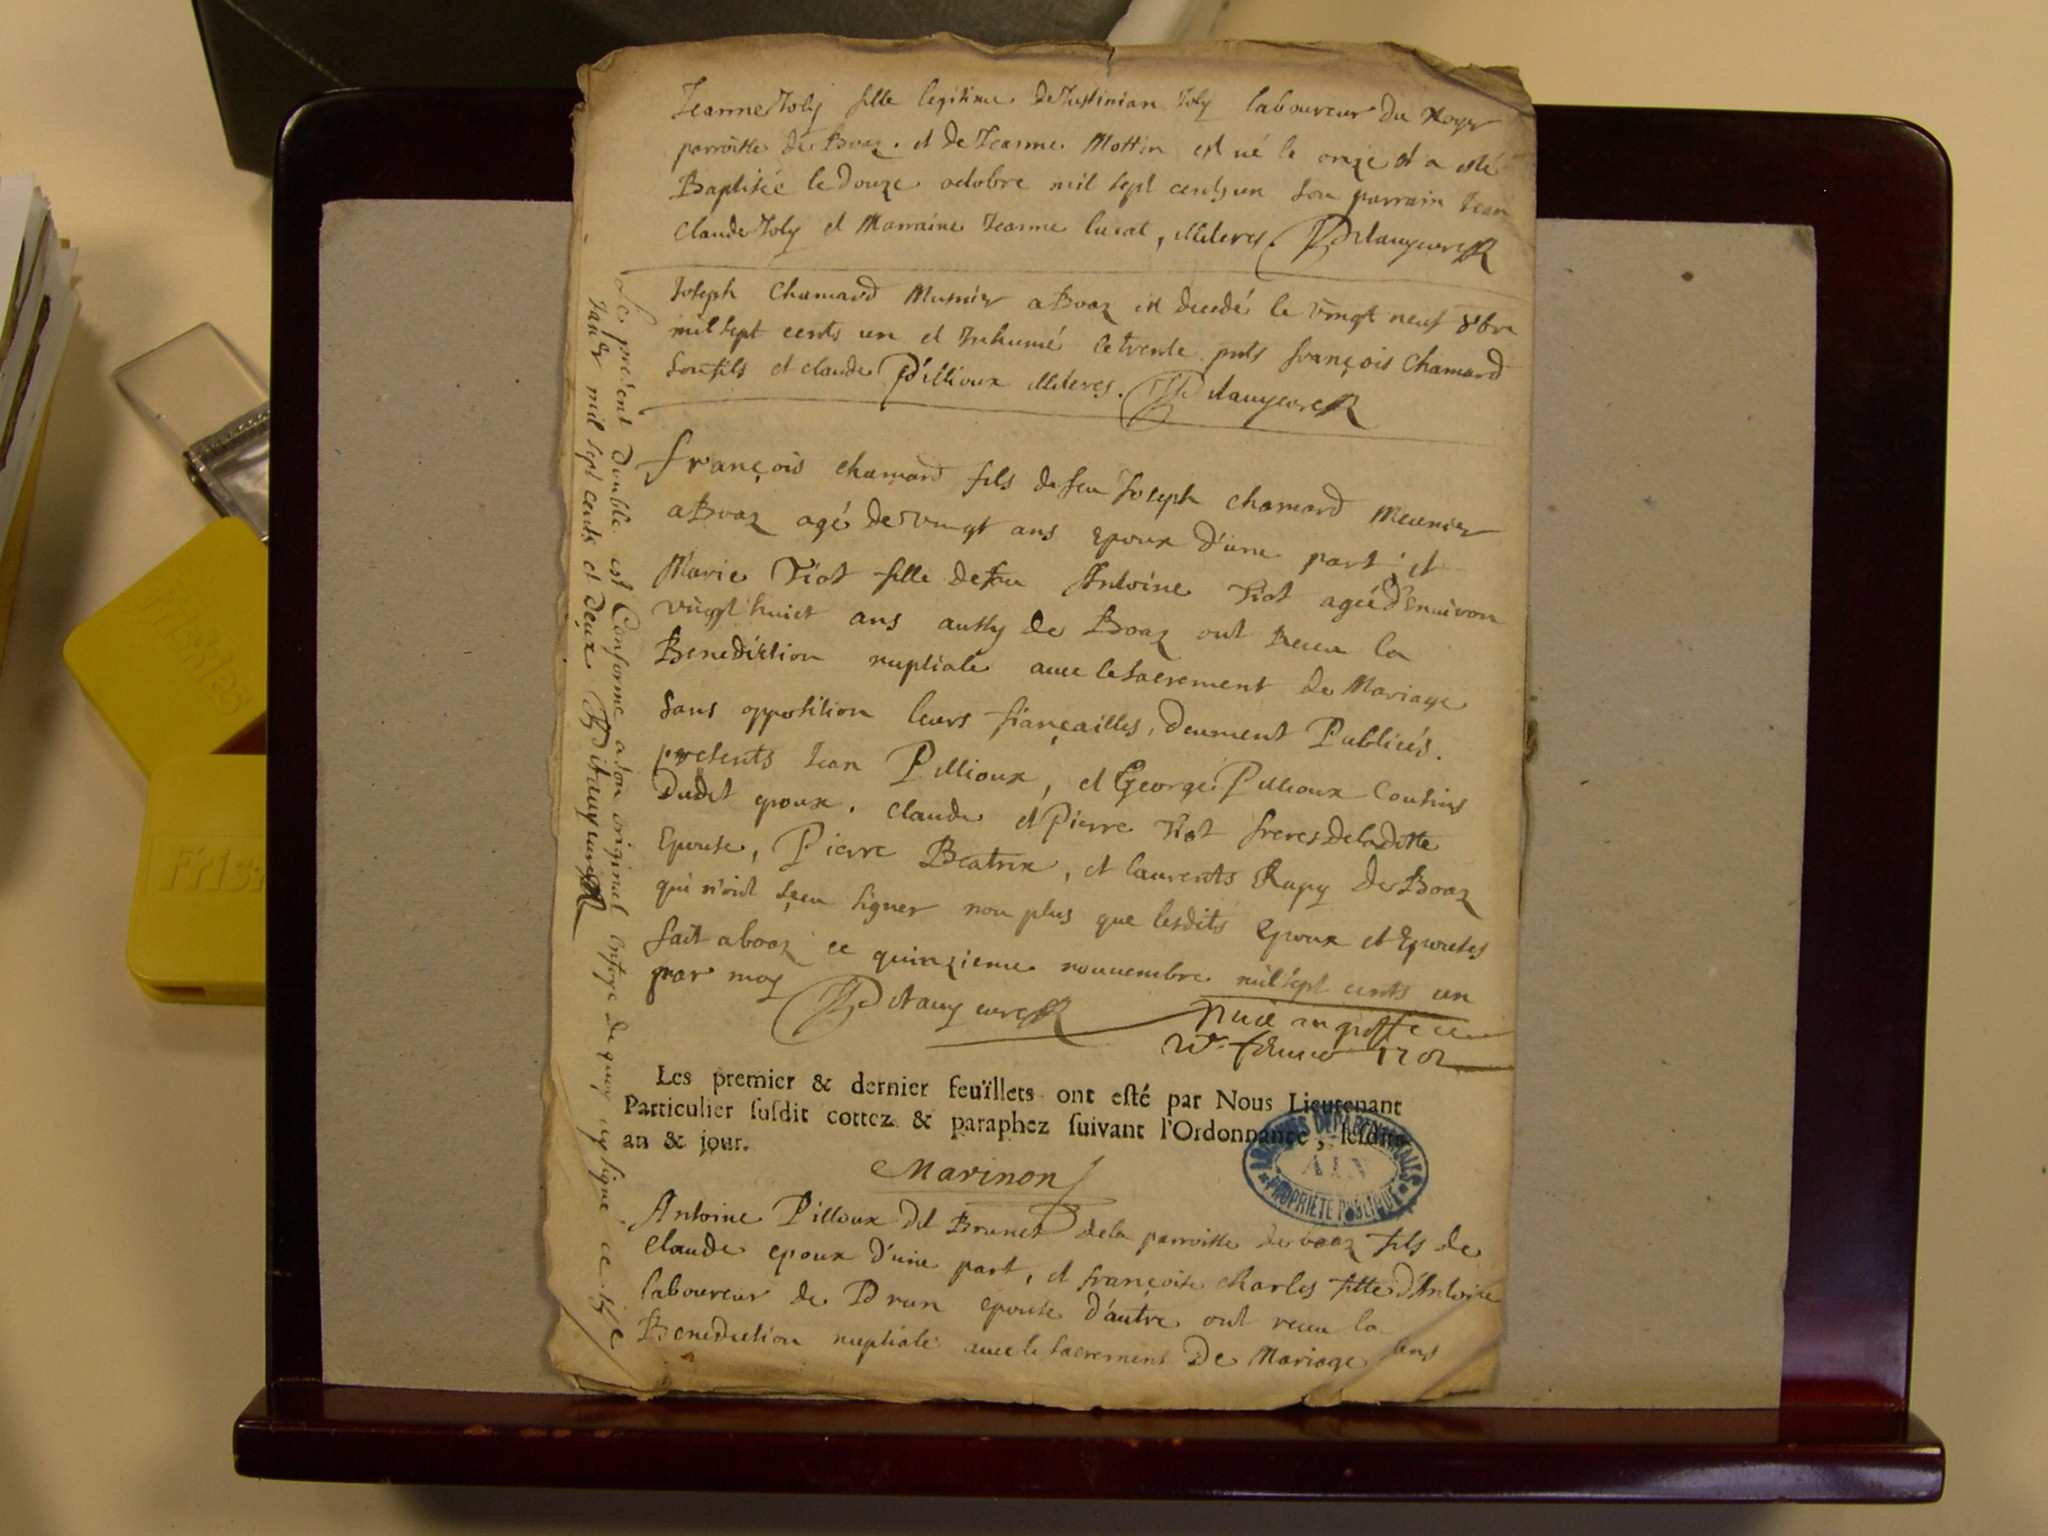 Jeanne Joly fille legitime de Justinian Joly laboureur du Noyer
parroisse de Boaz. et de Jeanne Mottin est né le onze et a esté
Baptisée le douze octobre mil sept cents un son parrain Jean
Claude Joly et Marraine Jeanne lucat, illiteres.
Joseph Chamard Musnier a Boaz est decedé le vingt neuf 8bre
mil sept cents un et Inhumé le trente. pnts françois Chamard
son fils et claude Pillioux illiteres.
françois chamard fils de feu Joseph chamard Meunier
a Boaz agé de vingt ans epoux d'une part; et
Marie Tiot fille de feu Anthoine Tiot agée d'Enuiron
vingt huict ans aussy de Boaz ont Receu la
Benediction nuptiale auec le sacrement de Mariage
sans opposition leurs fiançailles, deument Publiés.
presents Jean Pillioux, et George Pillioux Cousins
dudit epoux. claude et Pierre Tiot freres de la ditte
Epouse, Pierre Beatrix, et laurents Rapy de Boaz
qui n'ont sçeu signer non plus que lesdits Epoux et Epouses
fait a boaz ce quinzieme nouuembre mil sept cents un
par moy
greffe ce
feurier 1702
Les premier & dernier feuïllets ont esté par Nous Lieutenant
Particulier susdit cottez & paraphez suivant l'Ordonnance, lesdits
an & jour.
Marinon
ARCHIVES DEPARTEMENTALES
AIN
PROPRIETE PUBLIQUE
Antoine Pilloux dit Brunet de la parroisse de boaz fils de
Claude epoux d'une part, et françoise charles fille d'Antoine
laboureur de Drun epouse d'autre ont receu la
Benediction nuptiale auec le sacrement De Mariage sans
Le present double est Conforme a son original de quoy ay signé ce
Januier mil sept cents et deux
Friskias
Frisk